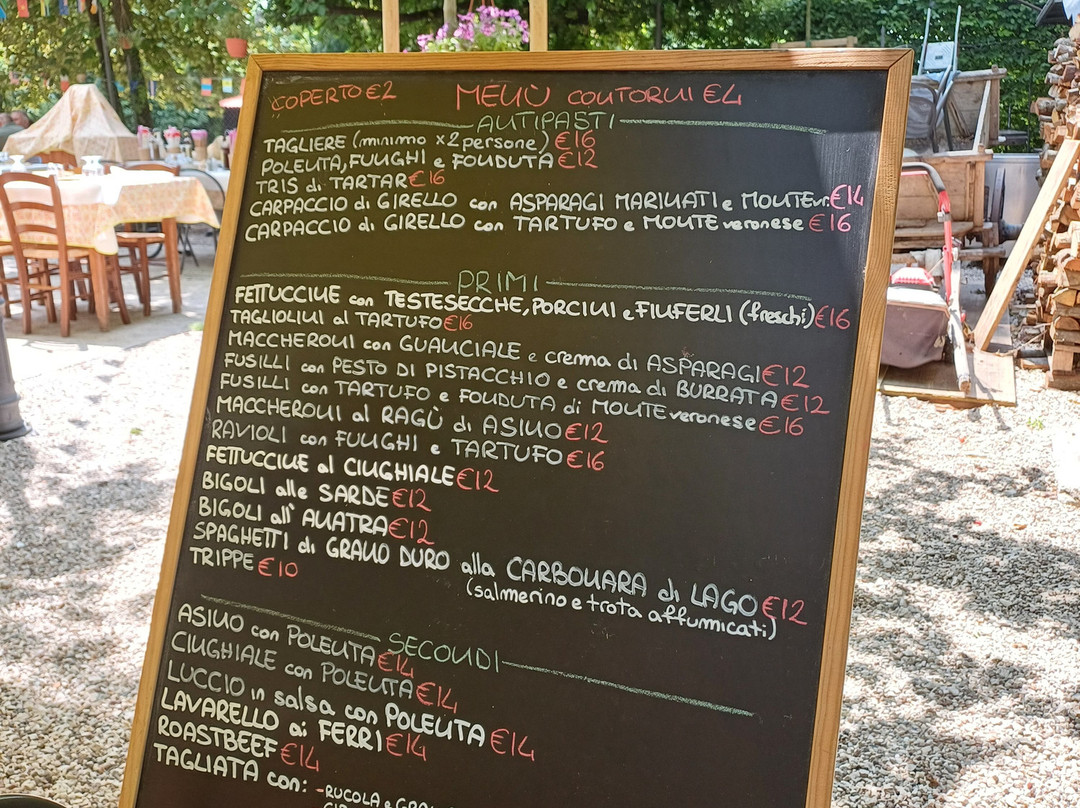 COPERTO €2 MENÙ CONTORNI €4
ANTIPASTI
TAGLIERE (minimo x2 persone) €16
POLENTA, FUNGHI e FONDUTA €12
TRIS di TARTAR €16
CARPACCIO di GIRELLO con ASPARAGI MARINATI e MONTEvr. €14
CARPACCIO di GIRELLO con TARTUFO e MONTE veronese €16
PRIMI
FETTUCCINE con TESTESECCHE, PORCINI e FINFERLI (freschi) €16
TAGLIOLINI al TARTUFO €16
MACCHERONI con GUANCIALE e crema di ASPARAGI €12
FUSILLI con PESTO DI PISTACCHIO e crema di BURRATA €12
FUSILLI con TARTUFO e FONDUTA di MONTE veronese €16
MACCHERONI al RAGÙ di ASINO €12
RAVIOLI con FUNGHI e TARTUFO €16
FETTUCCINE al CINGHIALE €12
BIGOLI alle SARDE €12
BIGOLI all' ANATRA €12
SPAGHETTI di GRANO DURO alla CARBONARA di LAGO €12
(salmerino e trota affumicati)
TRIPPE €10
SECONDI
ASINO con POLENTA €14
CINGHIALE con POLENTA €14
LUCCIO in salsa con POLENTA €14
LAVARELLO ai FERRI €14
ROASTBEEF €14
TAGLIATA con: - RUCOLA e